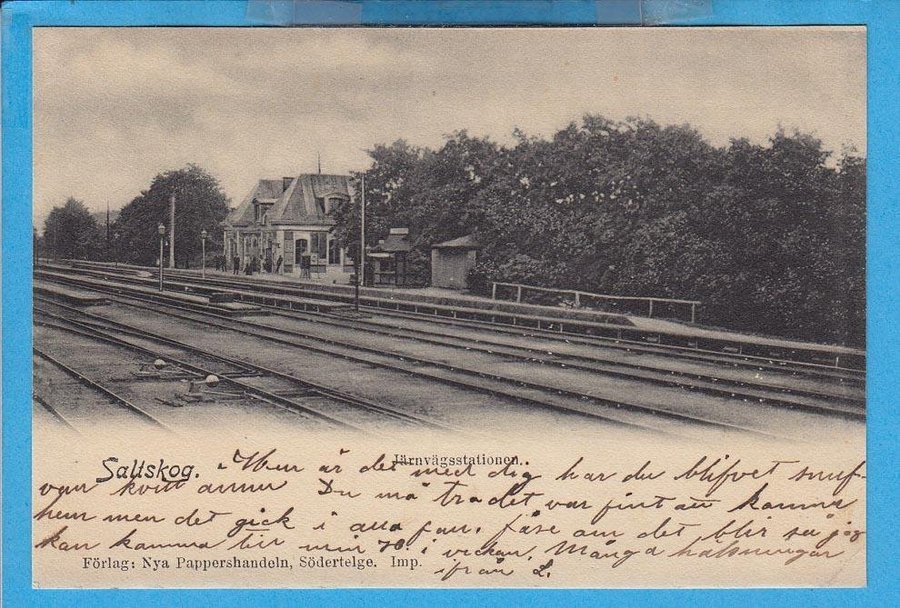 Saltskog.
Järnvägsstationen.
Hur är det med dig har du blifvet snuf-
van kvitt ännu Du må trodet var fint att komma
hem men det gick i alla fall. få se om det blir så jag
kan komma till min i veckan. Många hälsningar
ifrån L.
Förlag: Nya Pappershandeln, Södertelge. Imp.